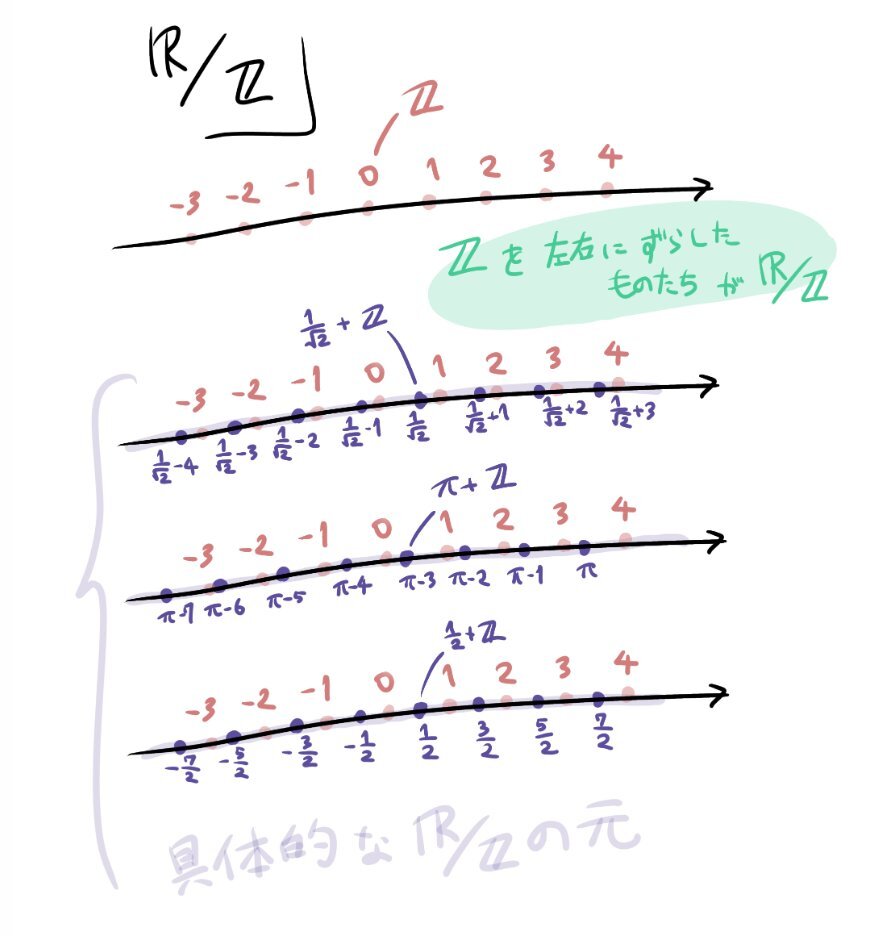 ℝ/ℤ
ℤ
-3 -2 -1 0 1 2 3 4
ℤを左右にずらした
ものたちがℝ/ℤ
1/√2 + ℤ
-3 -2 -1 0 1 2 3 4
1/√2-4 1/√2-3 1/√2-2 1/√2-1 1/√2 1/√2+1 1/√2+2 1/√2+3
π+ℤ
-3 -2 -1 0 1 2 3 4
π-7 π-6 π-5 π-4 π-3 π-2 π-1 π
1/2+ℤ
-3 -2 -1 0 1 2 3 4
-7/2 -5/2 -3/2 -1/2 1/2 3/2 5/2 7/2
具体的なℝ/ℤの元